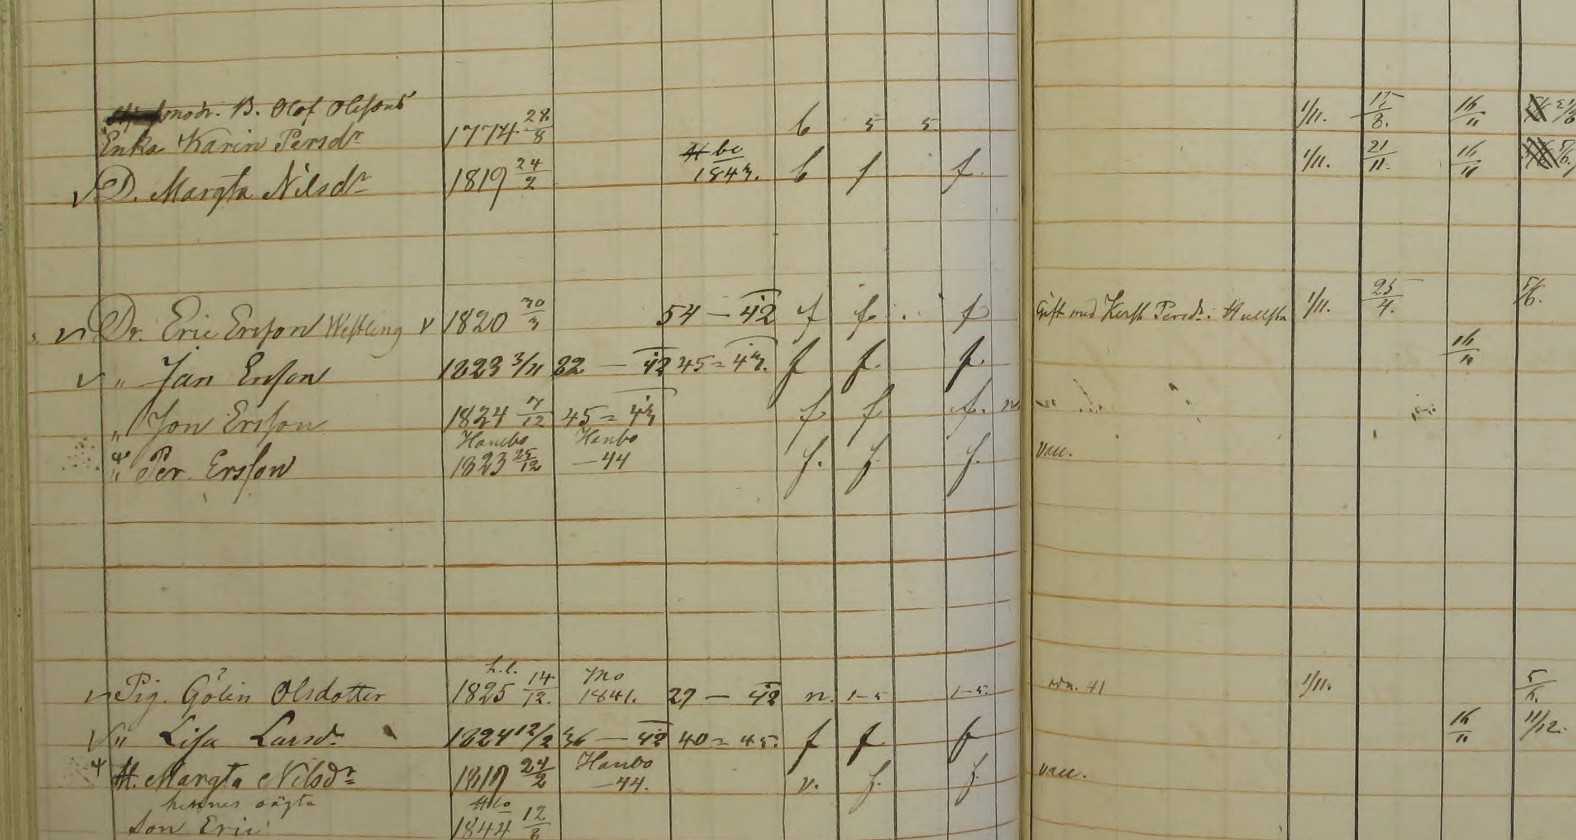 modr. B. Olof Olsons
Enka Karin Persdr 1774 28/8 b 5 5 1/11. 15/8. 16/11
D. Margta Nilsdr 1819 24/2 1843. b f f. 1/11. 21/11. 16/11
Dr. Eric Ersson Westling 1820 30/3 54 — 42 f f. f Gift med Kerst. Persdr. 1/11. 25/4. 5/6.
" Jan Ersson 1823 3/11 82 — 42 45 = 43. f f. f. 16/11
" Jon Ersson 1824 7/12 45 = 43 f f f.
Hanebo Hanbo
" Per Ersson 1823 25/12 — 44 f. f. f. vacc.
h.l. Mo
Pig. Gölin Olsdotter 1825 14/12. 1841. 27 — 42 n. 1-5 1-5. 41 1/11. 5/6.
" Lisa Larsdr 1824 12/2 36 — 42 40 = 45. f f f 16/11 11/12.
Hanbo
H. Margta Nilsdr 1819 24/2 — 44. v. f. f. vacc.
hennes oägta
son Eric 1844 12/8